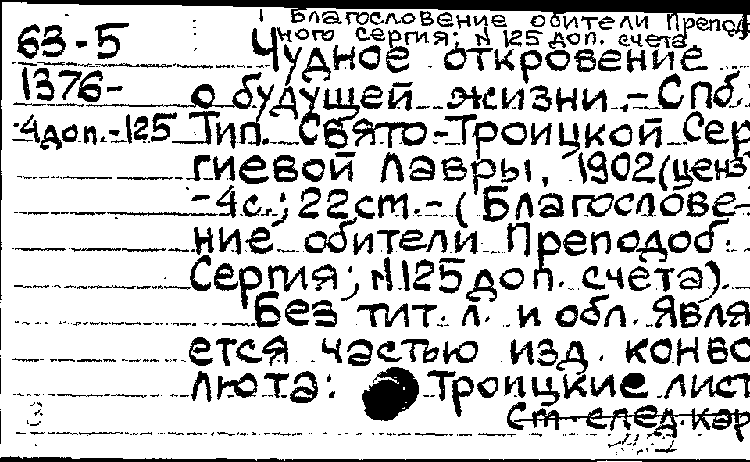 Благословение обители Препод
ного Сергия; N 125 доп. счета
63-5 Чудное откровение
1376- о будущей жизни.-Спб.:
4доп.-125 Тип. Свято-Троицкой Сер
гиевой Лавры, 1902(ценз
-4с.; 22см.-(Благослове-
ние обители Преподоб.
Сергия; N125 доп. счета).
Без тит. л. и обл. Явля
ется частью изд. конво
люта: Троицкие лист
3 См. след. кар